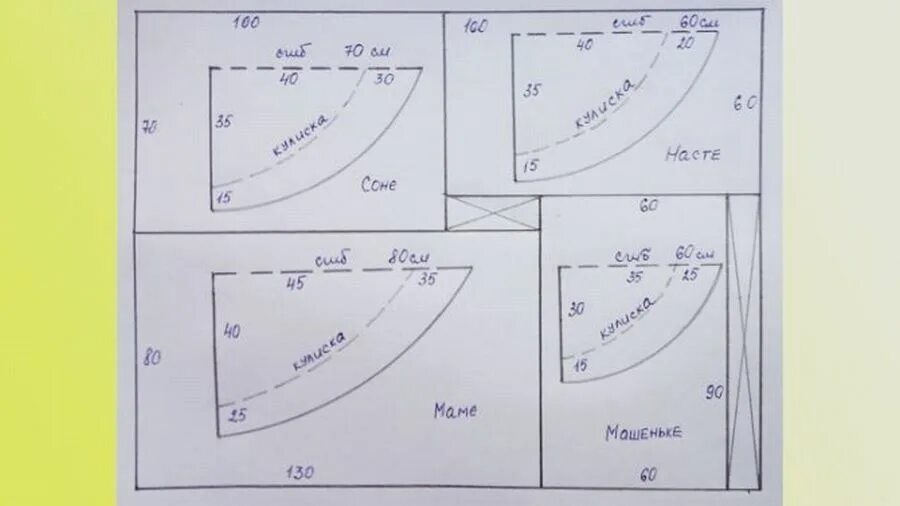 100
сгиб 70 см
40 30
35
70
кулиска
15
Соне
100
сгиб 60 см
40 20
35
60
кулиска
15
Насте
сгиб 80 см
45 35
40
80
кулиска
25
Маме
130
60
сгиб 60 см
35 25
30
кулиска
15
90
Машеньке
60